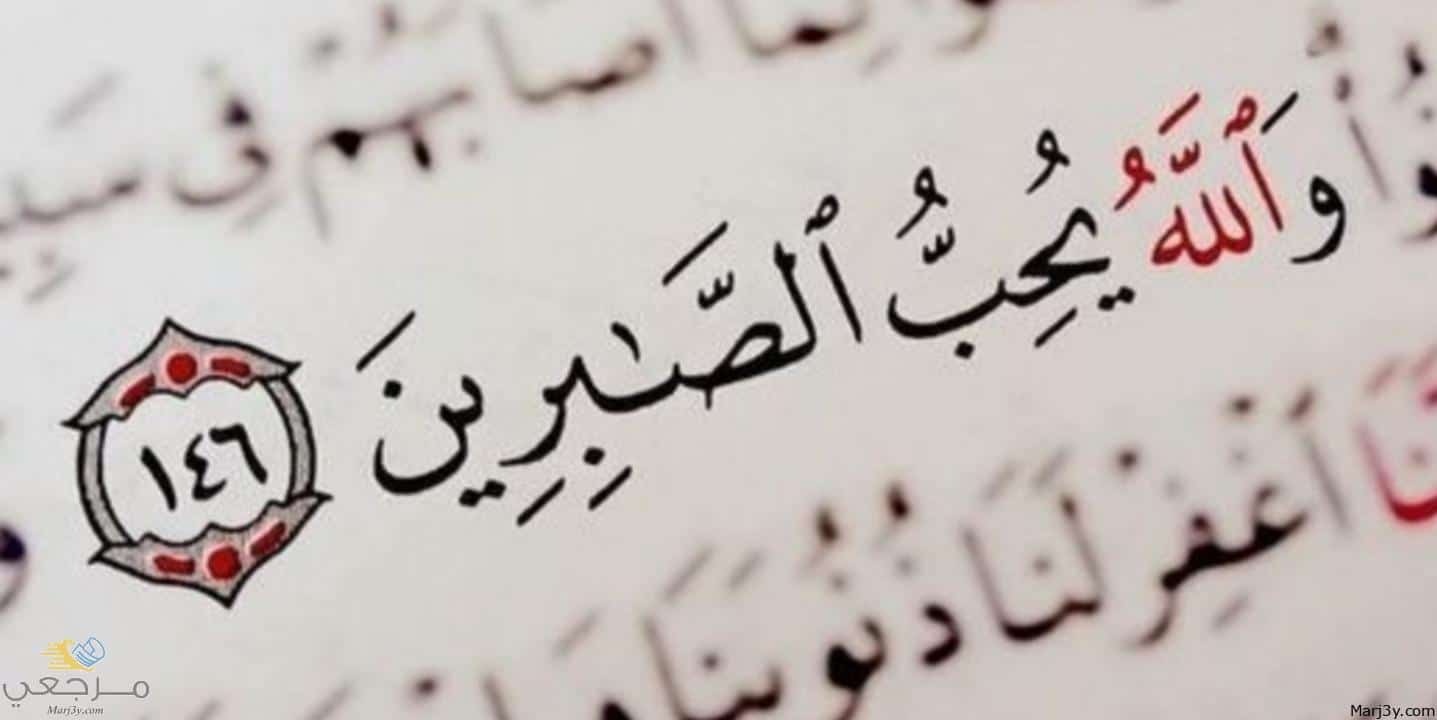 لِمَآ أَصَابَهُمْ فِى
وَٱللَّهُ يُحِبُّ ٱلصَّـٰبِرِينَ ١٤٦
ٱغْفِرْ لَنَا ذُنُوبَنَا
مرجعي
Marj3y.com
Marj3y.com